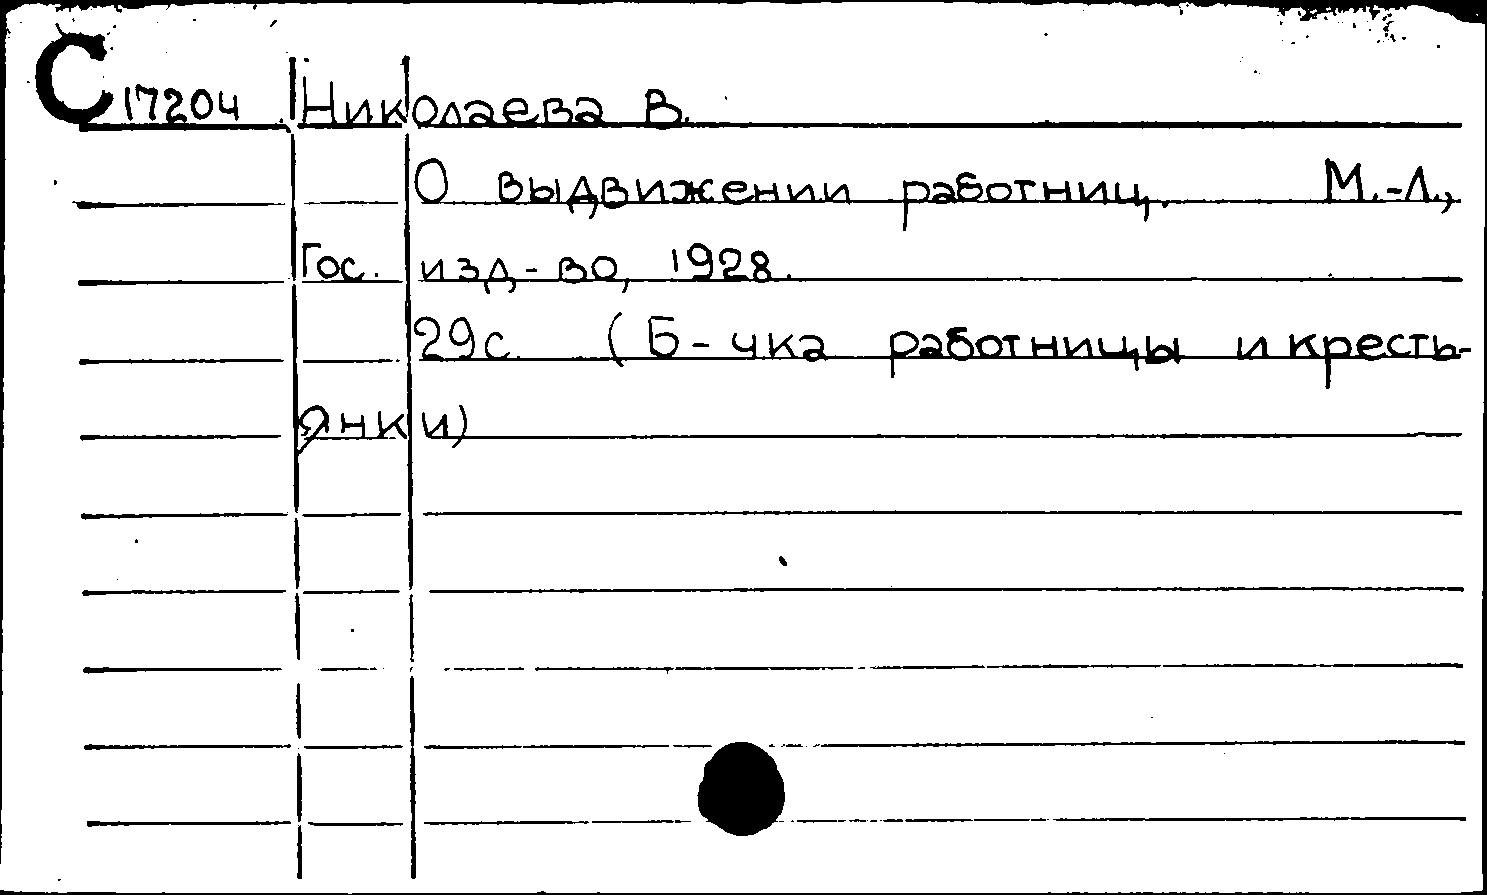 С 17204 Николаева В.
О выдвижении работниц. М.-Л.,
Гос. изд-во, 1928.
29с. (Б-чка работницы и кресть-
янки)